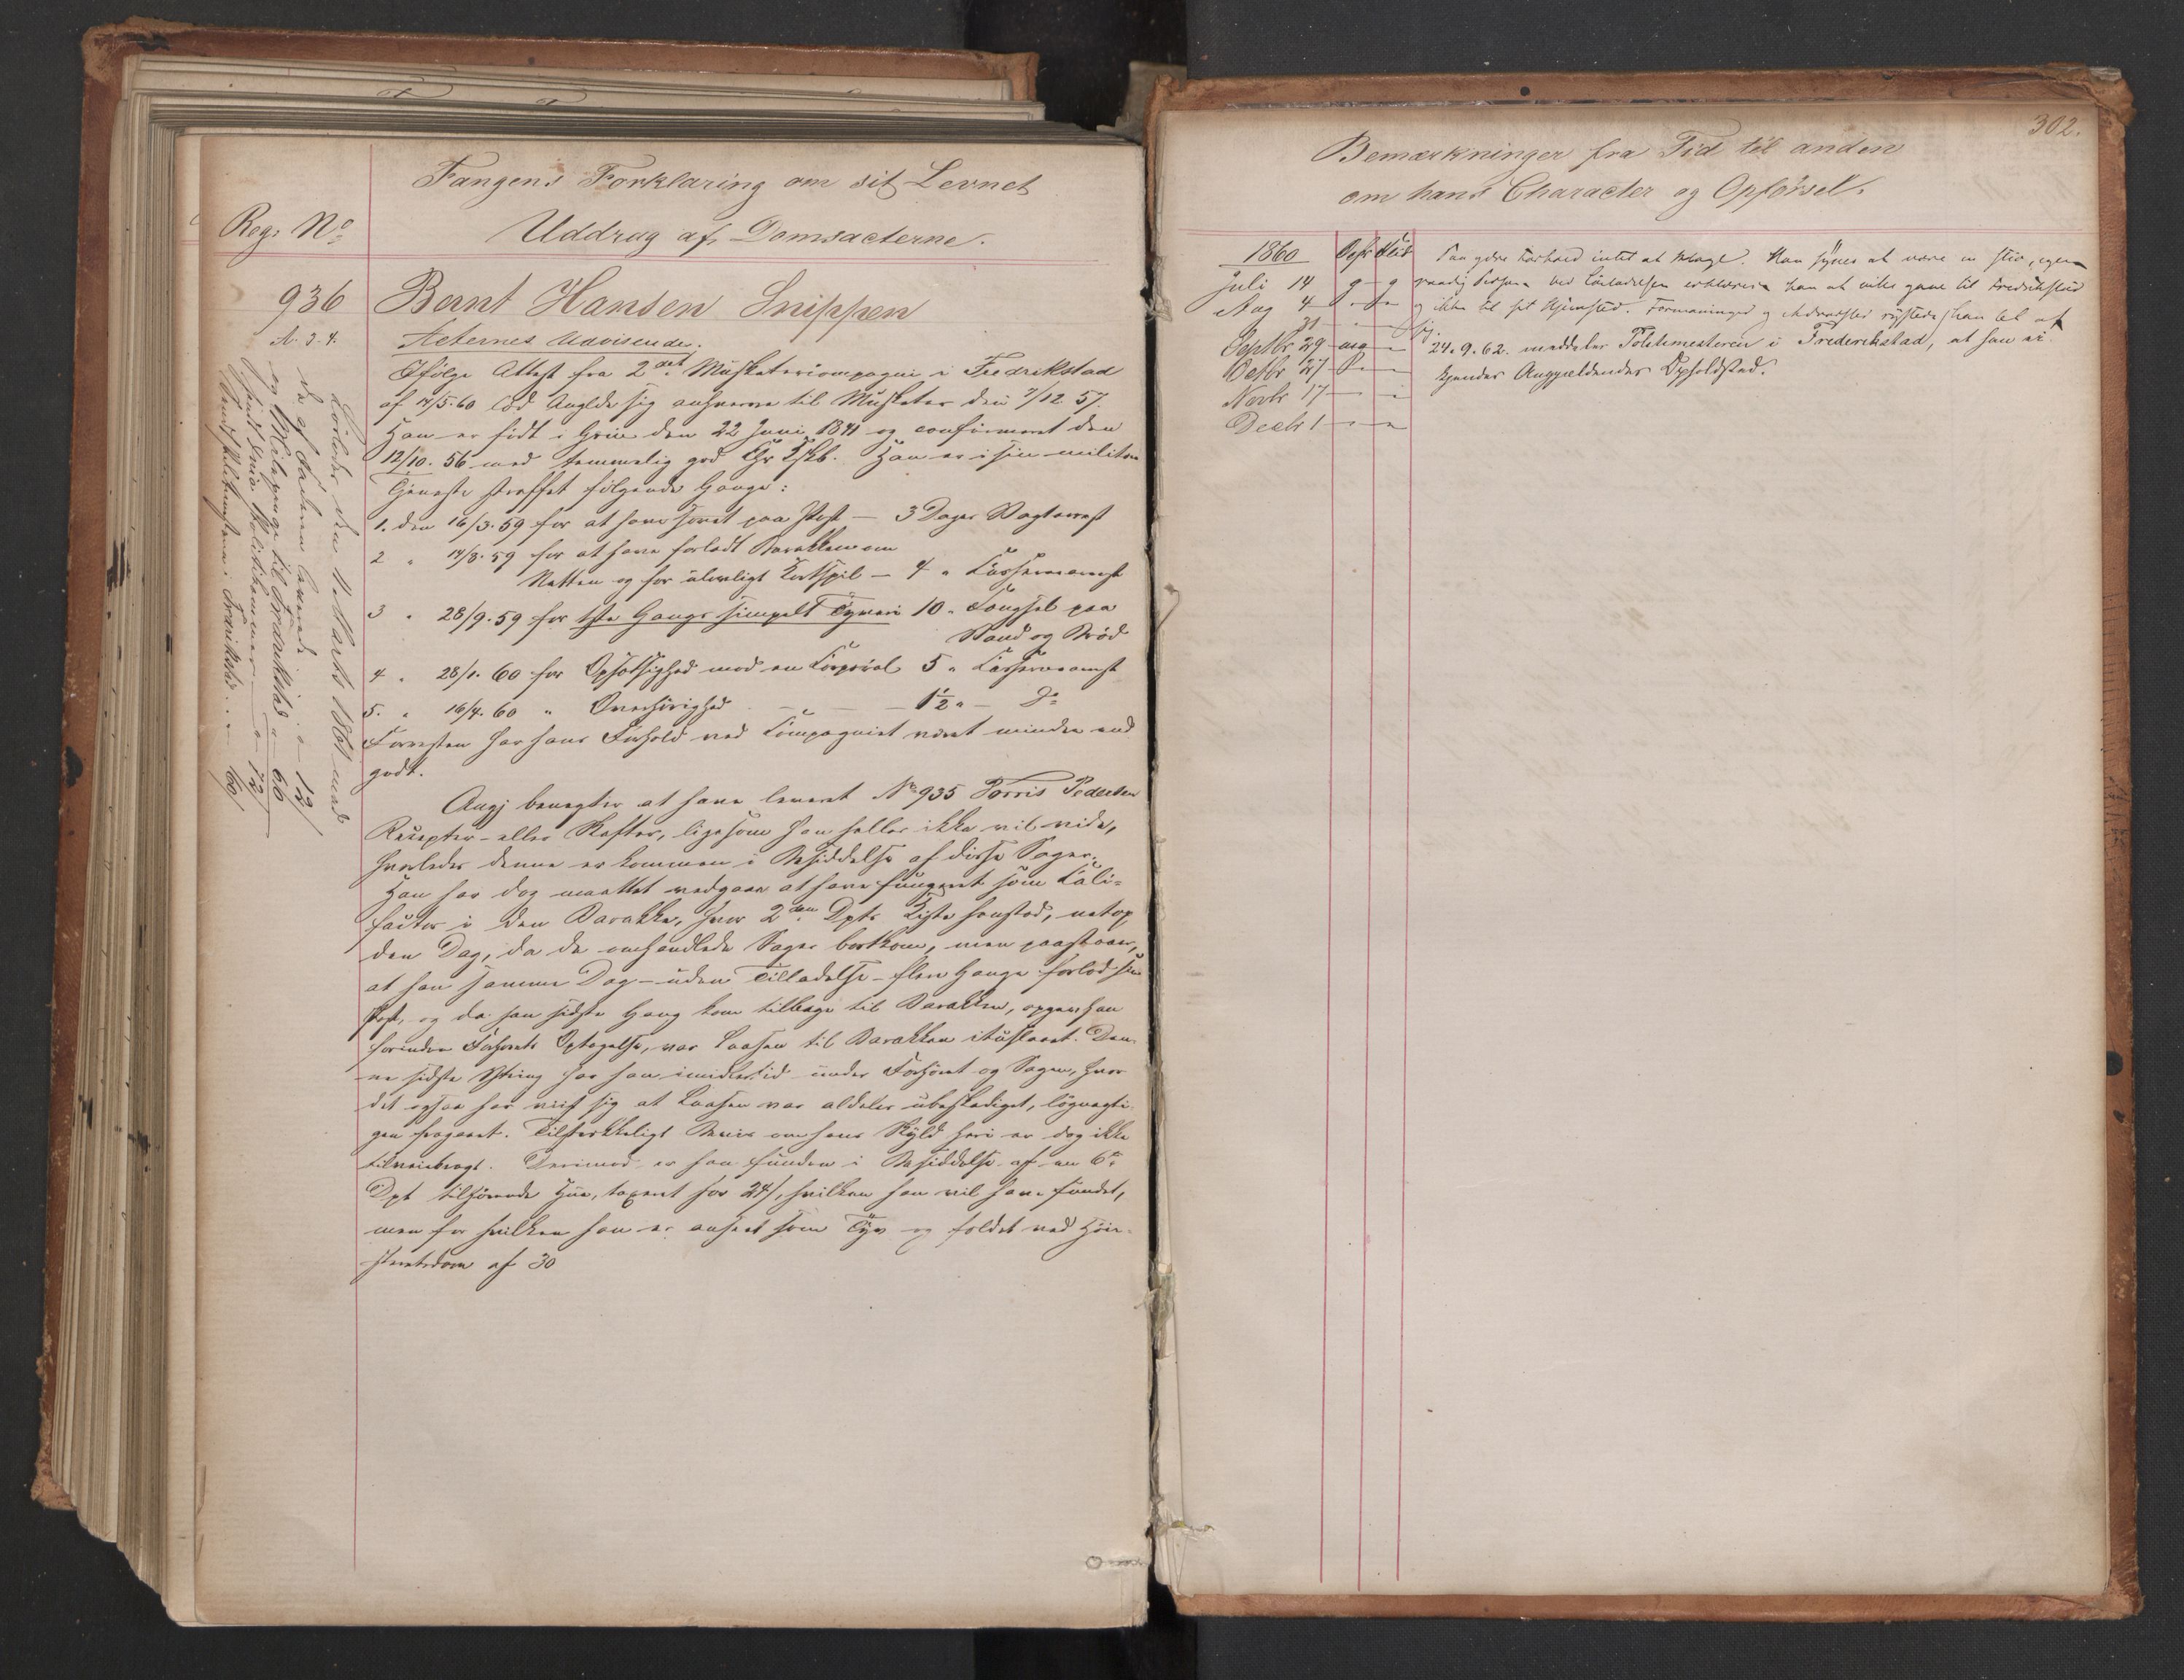 Fangens Forklaring om sit Levnet
Reg: No
Uddrag af Domsacterne.
936
Bernt Hansen Snippen
A. 3-4.
Acternes Udvisende.
Ifølge Attest fra 2det Musketercompagni i Fredrikstad
af 14/5.60 lod Angldr sig anhverve til Musketer den 7/12 57.
Han er født i Grue den 22 Juni 1841 og confirmeret den
12/10. 56 med temmelig god Chr Kskb. Han er i sin militære
Tjeneste straffet følgende Gange:
1. den 16/3.59 for at have sovet paa Post — 3 Dages Vagtarrest
2 " 14/8.59 for at have forladt Barakken om
Natten og for ulovligt Kortspil — 4 " Kassernearrest
3 " 28/9.59 for 1ste Gangs simpelt Tyveri 10 " Fængsel paa
Vand og Brød
4 " 28/1. 60 for Opsætsighed mod en Korporal 5 " Kassernearrest
5. " 16/4. 60 " Overhørighed — — — 1½ " — Do
Forresten har hans Forhold ved Kompagniet været mindre end
godt.
Angj benegter at have leveret No 935 Torris Pedersen
Recepter eller Skafter, ligesom han heller ikke vil vide,
hvorledes denne er kommen i Besiddelse af disse Sager.
Han har dog maattet vedgaae at have fungeret som Cali-
factor i den Barakke, hvor 2den Dpts Kiste henstod, netop
den Dag, da de omhandlede Sager bortkom, men paastaaer,
at han samme Dag – uden Tilladelse – flere Gange forlod sin
Post, og da han sidste Gang kom tilbage til Barakken, opgav han
forinden Forhørets Optagelse, var Laasen til Barakken ituslaaet. Den-
ne sidste Ytring har han imidlertid under Forhøret og Sagen, hvor
det ogsaa har viist sig at Laasen var aldeles ubeskadiget, løgnagti-
gen fragaaet. Tilstrekkeligt Beviis om hans Skyld heri er dog ikke
tilveiebragt. Derimod er han funden i Besiddelse af en 6te
Dpt tilhørende Hue, taxeret for 24 s, hvilken han vil have fundet,
men for hvilken han er anseet som Tyv og fældet ved Høie-
steretsdom af 30
Løslades den 11 Marts 1861 med
de af Fa
og Milepenge til Fredrikstad " 66
72
Politimesteren i Fredrikstad
302.
Bemærkninger fra Tid til anden
om hans Character og Opførsel.
1860 Opfr Flid
Juli 14 g g
Aug 4
31
Septbr 29
Octbr 27
Novbr 17
Decbr 1
Paa ydre Forhold intet at klage. Han synes at være en stiv, egen-
raadig Person. Ved Løsladelsen erklærer han at ville gaae til Fredrikstad
og ikke til sit Hjemsted. Formaninger og Advarsler
24.9.62. meddeler Politimesteren i Frederikstad, at han ei
kjender Anggjældendes Opholdsted.